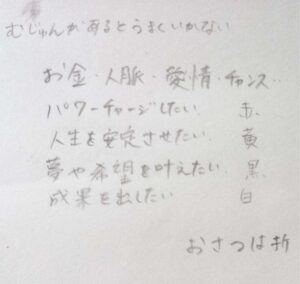 むじゅんがあるとうまくいかない
お金・人脈・愛情・チャンス…
パワーチャージしたい 赤
人生を安定させたい 黄
夢や希望を叶えたい 黒
成果を出したい 白
おさつは折